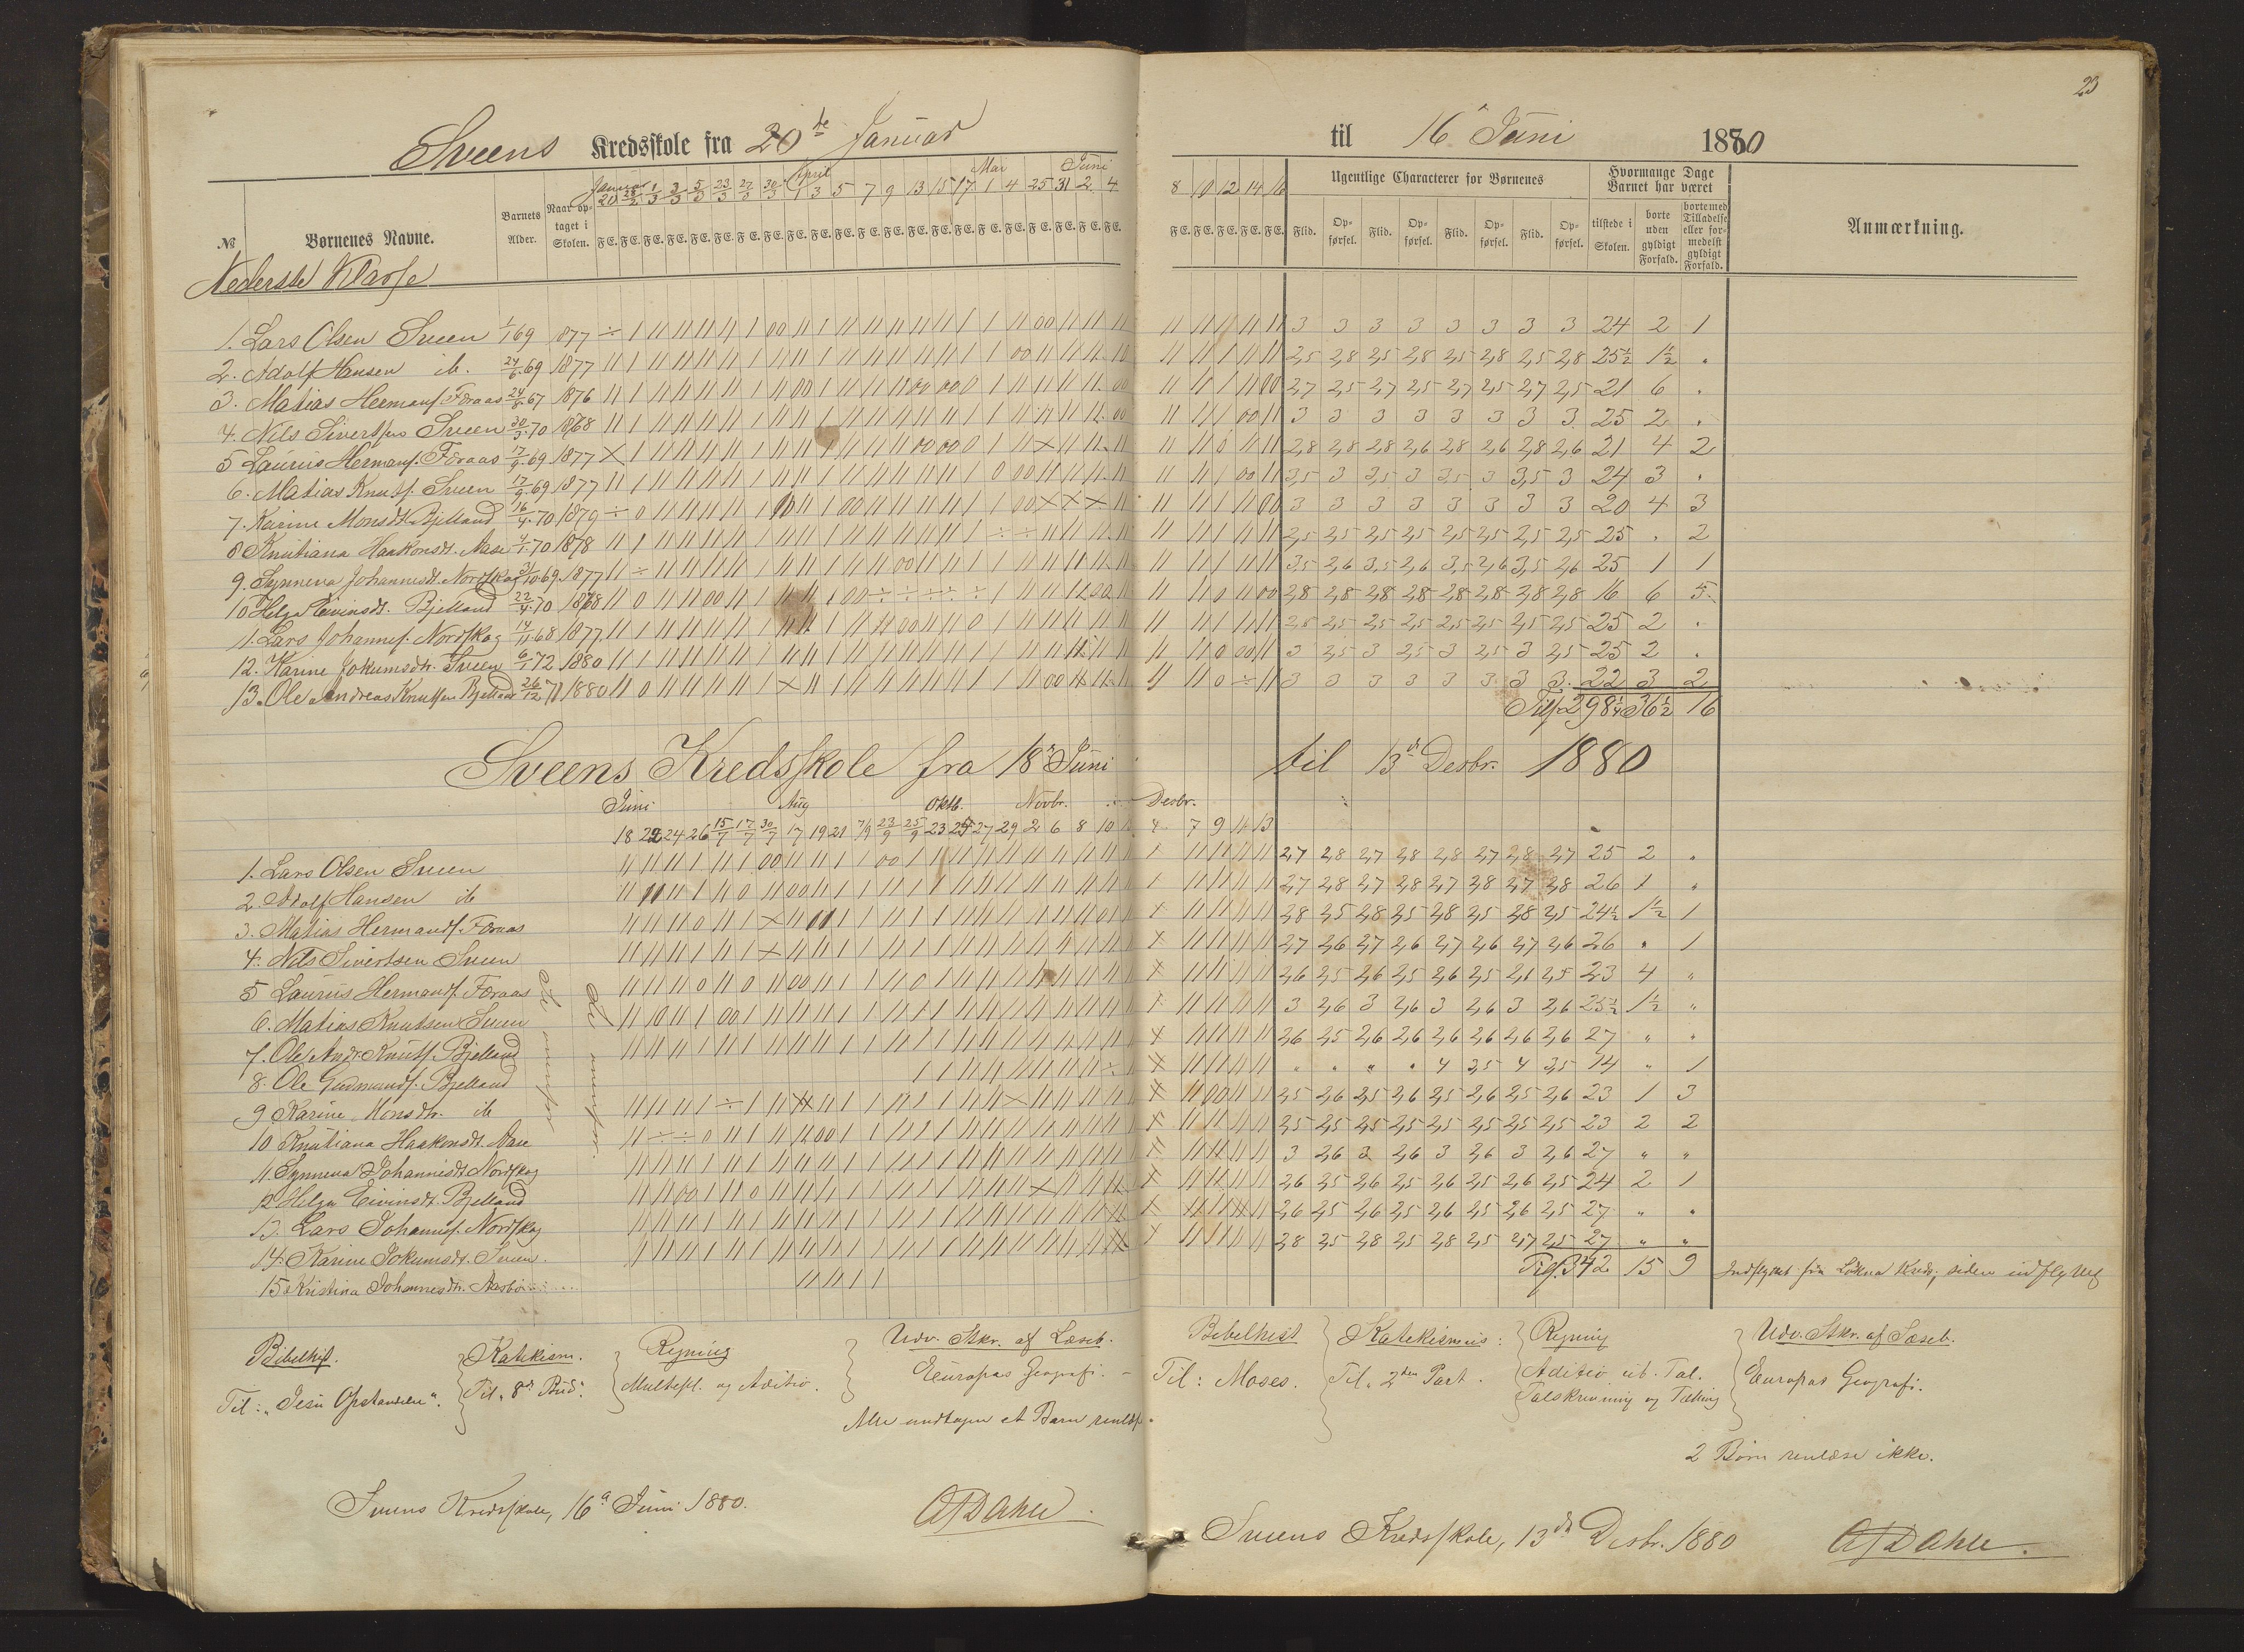 23
Sveens Kredsskole fra 20de Januar til 16 Juni 1880
Januar April Mai Juni
20 28/2 1/3 3/3 5/3 23/3 27/3 30/3 1 3 5 7 9 13 15 17 1 4 25 31 2 4 8 10 12 14 16
№ Børnenes Navne. Barnets Alder. Naar optaget i Skolen. F E. Ugentlige Characterer for Børnenes Flid. Opførsel. Flid. Opførsel. Flid. Opførsel. Flid. Opførsel. Hvormange Dage Barnet har været tilstede i Skolen. borte uden gyldigt Forfald. borte med Tilladelse eller formedelst gyldigt Forfald. Anmærkning.
Nederste Klasse
1. Lars Olsen Sveen 1/1 69 1877 3 3 3 3 3 3 3 3 24 2 1
2. Adolf Hansen ib. 24/6 69 1877 2,5 2,8 2,5 2,8 2,5 2,8 2,5 2,8 25½ 1½ "
3. Matias Hermansf. Foraas 24/8 67 1876 2,7 2,5 2,7 2,5 2,7 2,5 2,7 2,5 21 6 "
4. Nils Sivertsen Sveen 30/3 70 1878 3 3 3 3 3 3 3 3 25 2 "
5 Laurus Hermansf. Foraas 17/9 69 1877 2,8 2,8 2,8 2,6 2,8 2,6 2,8 2,6 21 4 2
6. Matias Knutsf. Sveen 17/9 69 1877 3,5 3 3,5 3 3,5 3 3,5 3 24 3 "
7. Karine Monsdt. Bjelland 16/4 70 1879 3 3 3 3 3 3 3 3 20 4 3
8 Knutiana Haakonsdt. Aase 4/1 70 1878 2,5 2,5 2,5 2,5 2,5 2,5 2,5 2,5 25 " 2
9. Synneva Johannesdt. Nordskog 31/10 69 1877 3,5 2,6 3,5 2,6 3,5 2,6 3,5 2,6 25 1 1
10 Helga Eivinsdt. Bjelland 22/4 70 1878 2,8 2,8 2,8 2,8 2,8 2,8 2,8 2,8 16 6 5
11. Lars Johannesf. Nordskog 14/11 68 1877 2,5 2,5 2,5 2,5 2,5 2,5 2,5 2,5 25 2 "
12. Karine Jokumsdtr. Sveen 6/1 72 1880 3 2,5 3 2,5 3 2,5 3 2,5 25 2 "
13. Ole Andreas Knutsen Bjelland 26/12 71 1880 3 3 3 3 3 3 3 3 22 3 2
Tils. 298½ 36½ 16
Sveens Kredsskole fra 18de Juni til 13de Desbr. 1880
Juni Aug Oktb. Novbr. Desbr.
18 22 24 26 15/7 17/7 30/7 17 19 21 7/9 23/9 25/9 23 25 27 29 2 6 8 10 4 7 9 11 13
1. Lars Olsen Sveen 2,7 2,8 2,7 2,8 2,8 2,7 2,8 2,7 25 2 "
2. Adolf Hansen ib 2,7 2,8 2,7 2,8 2,7 2,8 2,7 2,8 26 1 "
3. Matias Hermansf. Foraas 2,8 2,5 2,8 2,5 2,8 2,5 2,8 2,5 24½ 1½ 1
4. Nils Sivertsen Sveen 2,7 2,6 2,7 2,6 2,7 2,6 2,7 2,6 26 " 1
5 Laurus Hermansf. Foraas 2,6 2,5 2,6 2,5 2,6 2,5 2,6 2,5 23 4 "
6. Matias Knutsen Sveen 3 2,6 3 2,6 3 2,6 3 2,6 25½ 1½ "
7. Ole Andr. Knutsf. Bjelland 2,6 2,5 2,6 2,6 2,6 2,6 2,6 2,6 27 " "
8. Ole Gudmundsf. Bjelland " " " " 4 3,5 4 3,5 14 " 1
9 Karine Monsdtr. ib 2,5 2,6 2,5 2,6 2,5 2,6 2,5 2,6 23 1 3
10 Knutiana Haakonsdt. Aase 2,5 2,5 2,5 2,5 2,5 2,5 2,5 2,5 23 2 2
11. Synneva Johannesdt. Nordskog 3 2,6 3 2,6 3 2,6 3 2,6 27 " "
12 Helga Eivinsdt. Bjelland 2,6 2,5 2,6 2,5 2,6 2,5 2,6 2,5 24 2 1
13. Lars Johannesf. Nordskog 2,6 2,5 2,6 2,5 2,6 2,5 2,6 2,5 27 " "
14. Karine Jokumsdt. Sveen. 2,8 2,5 2,8 2,5 2,8 2,5 2,7 2,5 27 " "
15 Kristina Johannesdtr. Aasbø
Tils. 342 15 9
Indflyttet fra Løkna Kreds, siden udflyttet
Se ovenfor
Se ovenfor
Bibelhist.
Til: "Jesu Opstandelse".
Katekism.
Til "8de Bud".
Regning
Multipl. og Aditio.
Udv. Stkr. af Læseb.
Europas Geografi.
Alle undtagen et Barn renlæse.
Sveens Kredsskole, 16de Juni 1880.
A Dahle
Bibelhist
Til: Moses.
Katekismus:
Til 2den Part.
Regning
Aditio ub. Tal.
Talskrivning og Tælling
Udv. Stkr. af Læseb.
Europas Geografi.
2 Børn renlæse ikke.
Sveens Kredsskole, 13de Desbr. 1880
A Dahle.